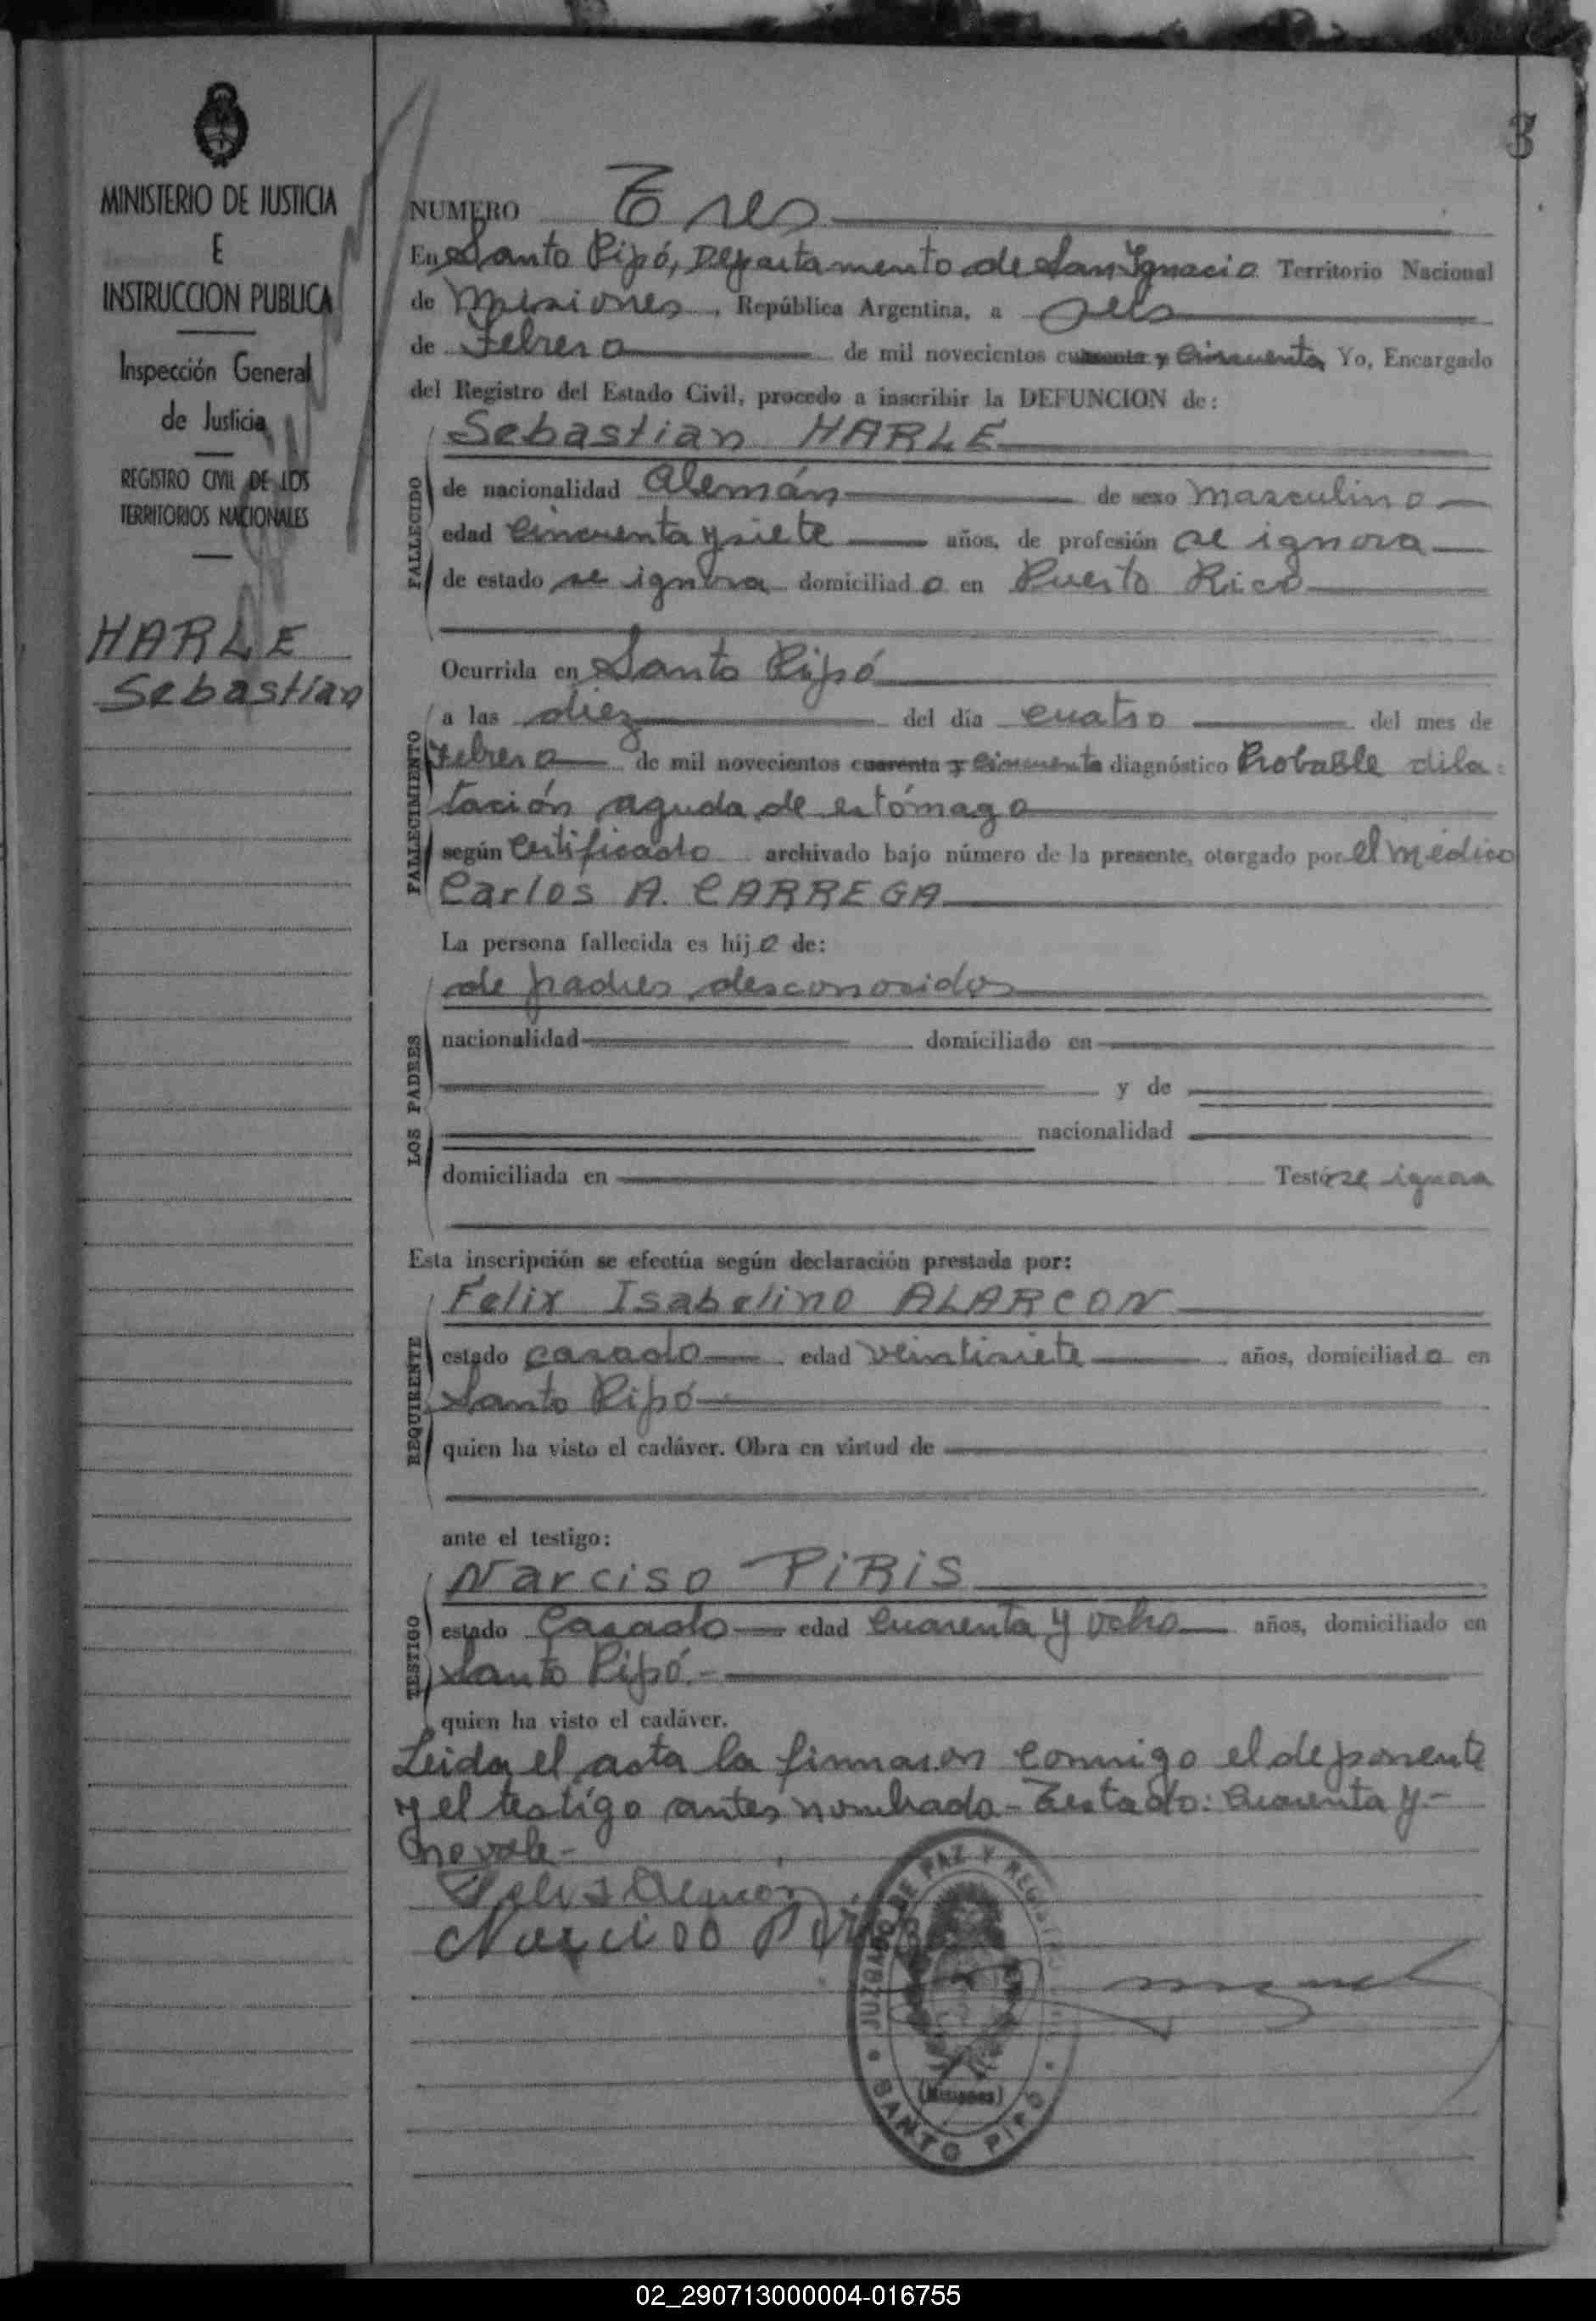 3
MINISTERIO DE JUSTICIA
E
INSTRUCCION PUBLICA
Inspección General
de Justicia
REGISTRO CIVIL DE LOS
TERRITORIOS NACIONALES
HARLE
Sebastian
NUMERO Tres
En Santo Pipó, Departamento de San Ignacio Territorio Nacional
de Misiones, República Argentina, a seis
de Febrero de mil novecientos cuarenta y cincuenta Yo, Encargado
del Registro del Estado Civil, procedo a inscribir la DEFUNCION de:
FALLECIDO
Sebastian HARLE
de nacionalidad Alemán de sexo masculino
edad cincuenta y siete años, de profesión se ignora
de estado se ignora domiciliado en Puerto Rico
Ocurrida en Santo Pipó
FALLECIMIENTO
a las diez del día cuatro del mes de
Febrero de mil novecientos cuarenta y cincuenta diagnóstico Probable dila-
tación aguda de estómago
según certificado archivado bajo número de la presente, otorgado por el médico
Carlos A. CARREGA
La persona fallecida es hijo de:
LOS PADRES
de padres desconocidos
nacionalidad domiciliado en
y de
nacionalidad
domiciliada en Testó se ignora
Esta inscripción se efectúa según declaración prestada por:
REQUIRENTE
Felix Isabelino ALARCON
estado casado edad veintisiete años, domiciliado en
Santo Pipó
quien ha visto el cadáver. Obra en virtud de
ante el testigo:
TESTIGO
Narciso PIRIS
estado Casado edad cuarenta y ocho años, domiciliado en
Santo Pipó.-
quien ha visto el cadáver.
Leida el acta la firmaron conmigo el deponente
y el testigo antes nombrado - Testado: cuarenta y -
no vale -
Narciso Piris
JUZGADO DE PAZ Y
(Misiones)
SANTO PIPO
02_290713000004-016755